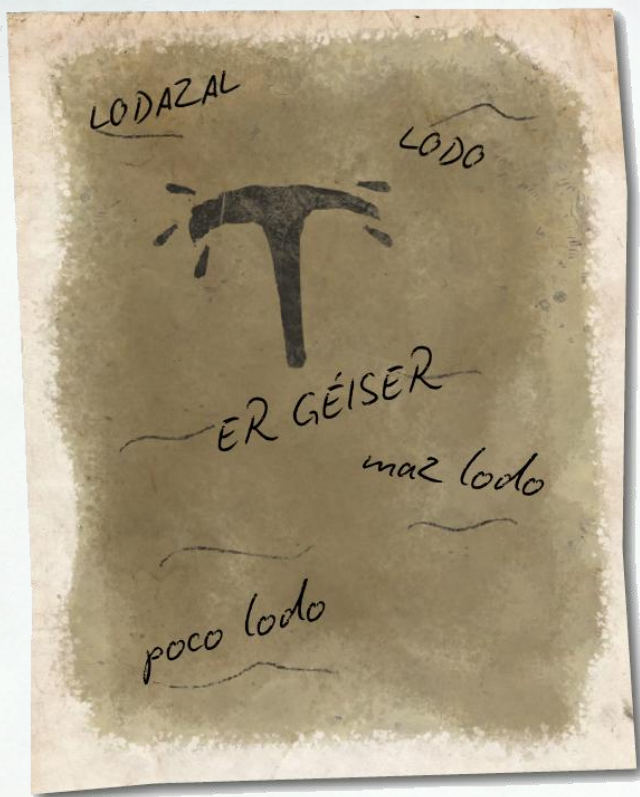 LODAZAL
LODO
ER GÉISER
maz lodo
poco lodo